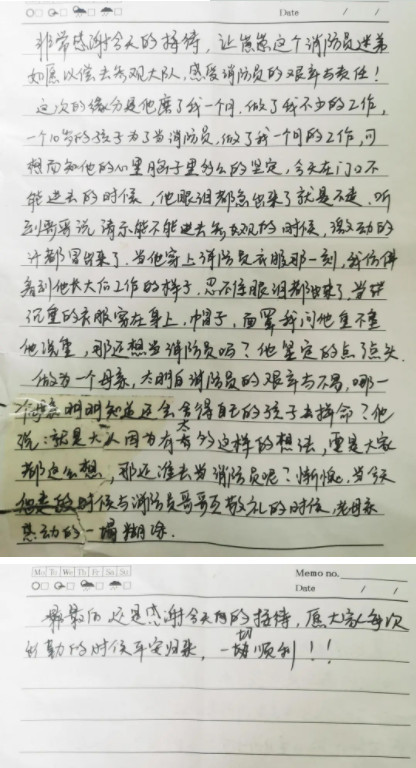 Date / /
非常感谢今天的接待，让崽崽这个消防员迷弟
如愿以偿去参观大队，感受消防员的艰辛与责任！
这次的缘分是他磨了我一个月，做了我不少的工作，
一个10岁的孩子为了当消防员，做了我一个月的工作，可
想而知他的心里脑子里多么的坚定，今天在门口不
能进去的时候，他眼泪都急出来了就是不走，听
到哥哥说请示能不能进去参观的时候，激动的
汗都冒出来了，当他穿上消防员衣服那一刻，我仿佛
看到他长大后工作的样子，忍不住眼泪都出来了，当
沉重的衣服穿在身上，帽子，面罩我问他重不重
他说重，那还想当消防员吗？他坚定的点点头
做为一个母亲，太明白消防员的艰辛与不易，哪一
个母亲明明知道还会舍得自己的孩子去拼命？他
说：就是大人因为有太多这样的想法，要是大家
都这么想，那还谁去当消防员呢？惭愧，当今天
的时候与消防员哥哥互敬礼的时候，老母亲
感动的一塌糊涂.
Mo Tu We Th Fr Sa Su
Memo no.
Date / /
最后还是感谢今天的接待，愿大家每次
出勤的时候平安归来，一切顺利！！